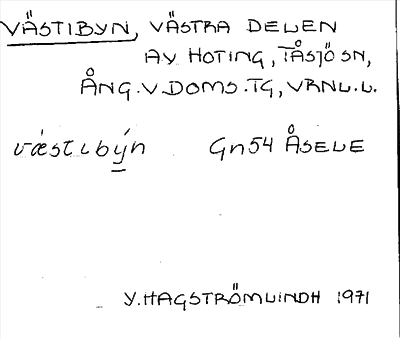 VÄSTIBYN, VÄSTRA DELEN
AV HOTING, TÅSJÖ SN,
ÅNG. V. DOMS. TG, VRNL. L.
væ̀stɩbýn Gn54 ÅSELE
Y. HAGSTRÖMLINDH 1971